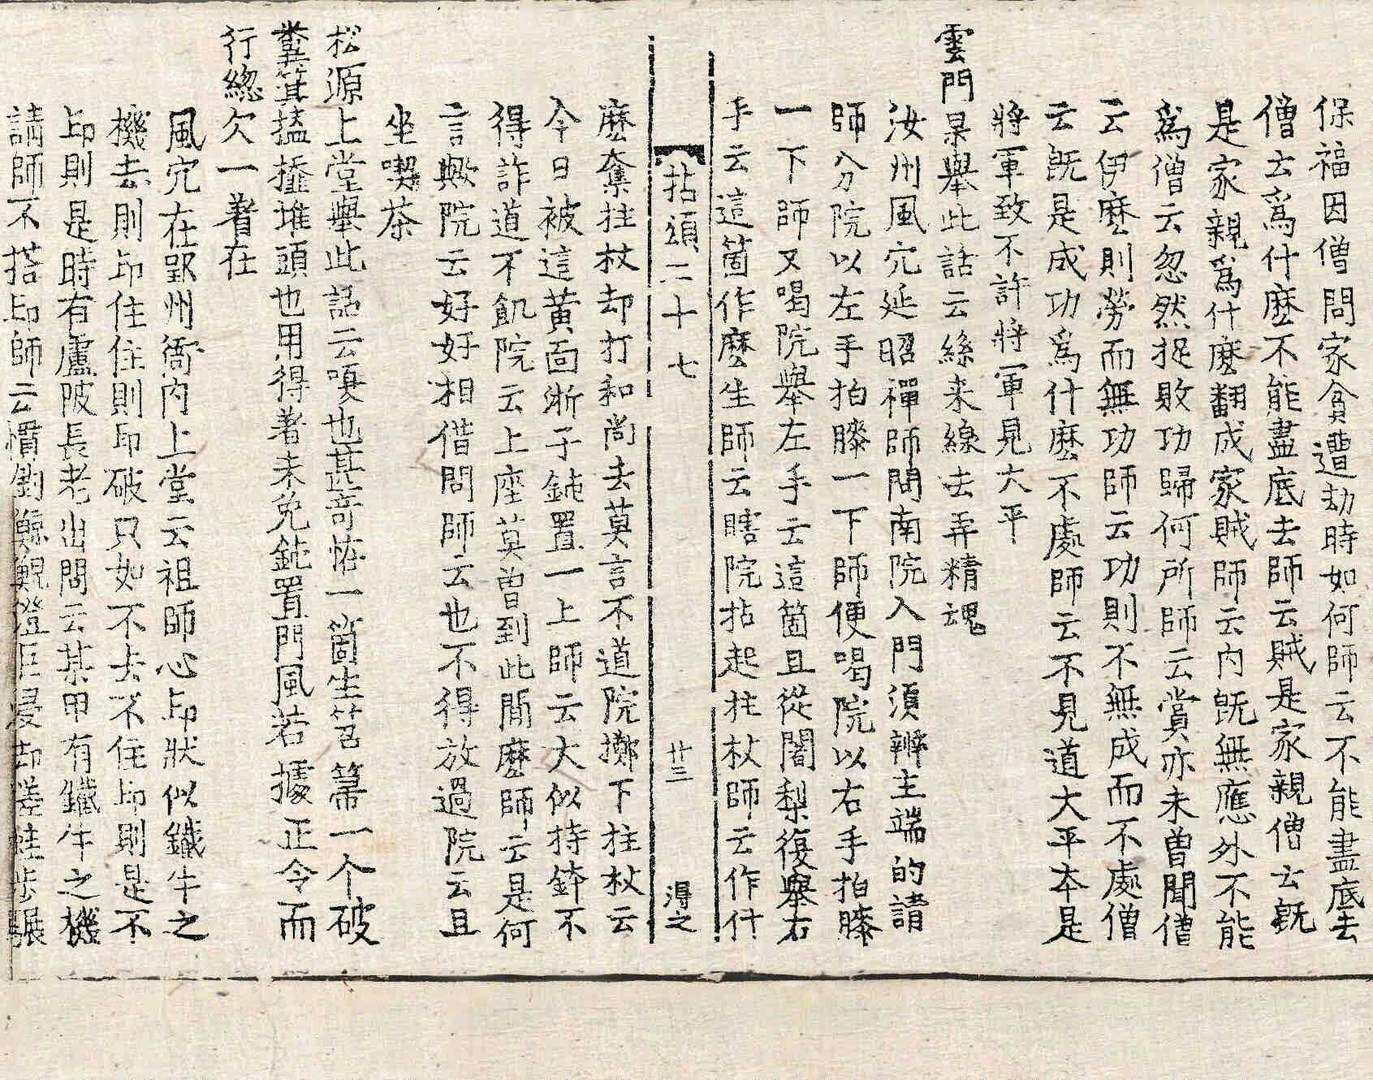 保福因僧問家貧遭劫時如何師云不能盡底去
僧云爲什麽不能盡底去師云賊是家親僧云旣
是家親爲什麽翻成家賊師云内旣無應外不能
爲僧云忽然捉敗功歸何所師云賞亦未曽聞僧
云伊麽則勞而無功師云功則不無成而不處僧
云旣是成功爲什麽不處師云不見道大平本是
將軍致不許將軍見大平
雲門杲舉此話云絲来線去弄精魂
汝州風穴延昭禪師問南院入門須辨主端的請
師分院以左手拍膝一下師便喝院以右手拍膝
一下師又喝院舉左手云這箇且從闍梨復舉右
手云這箇作麽生師云瞎院拈起柱杖師云作什
拈頌二十七 廿三 淂之
麽奪柱杖却打和尚去莫言不道院擲下柱杖云
今日被這黄面浙子鈍置一上師云大似持鉢不
得詐道不飢院云上座莫曽到此間麽師云是何
言歟院云好好相借問師云也不得放過院云且
坐喫茶
松源上堂舉此話云嗄也甚竒恠一箇生苕箒一个破
糞箕搕𢶍堆頭也用得著未免鈍置門風若據正令而
行緫欠一著在
風穴在郢州衙内上堂云祖師心印狀似鐵牛之
機去則印住住則印破只如不去不住印則是不
印則是時有盧陂長老出問云某甲有鐵牛之機
請師不搭印師云慣釣鯨鯢澄巨浸却嗟蛙步𩥇